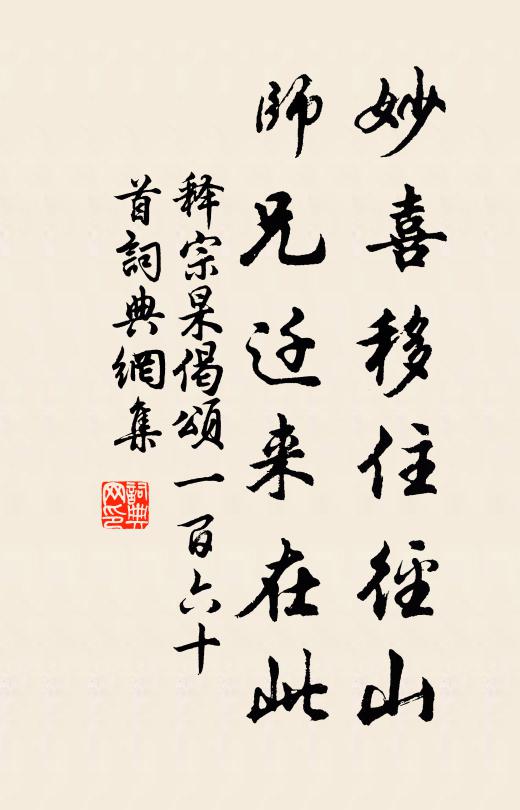 妙喜移住徑山
師兄迁来在此
释宗杲偈頌一百六十
首詞典網集
詞典
网印